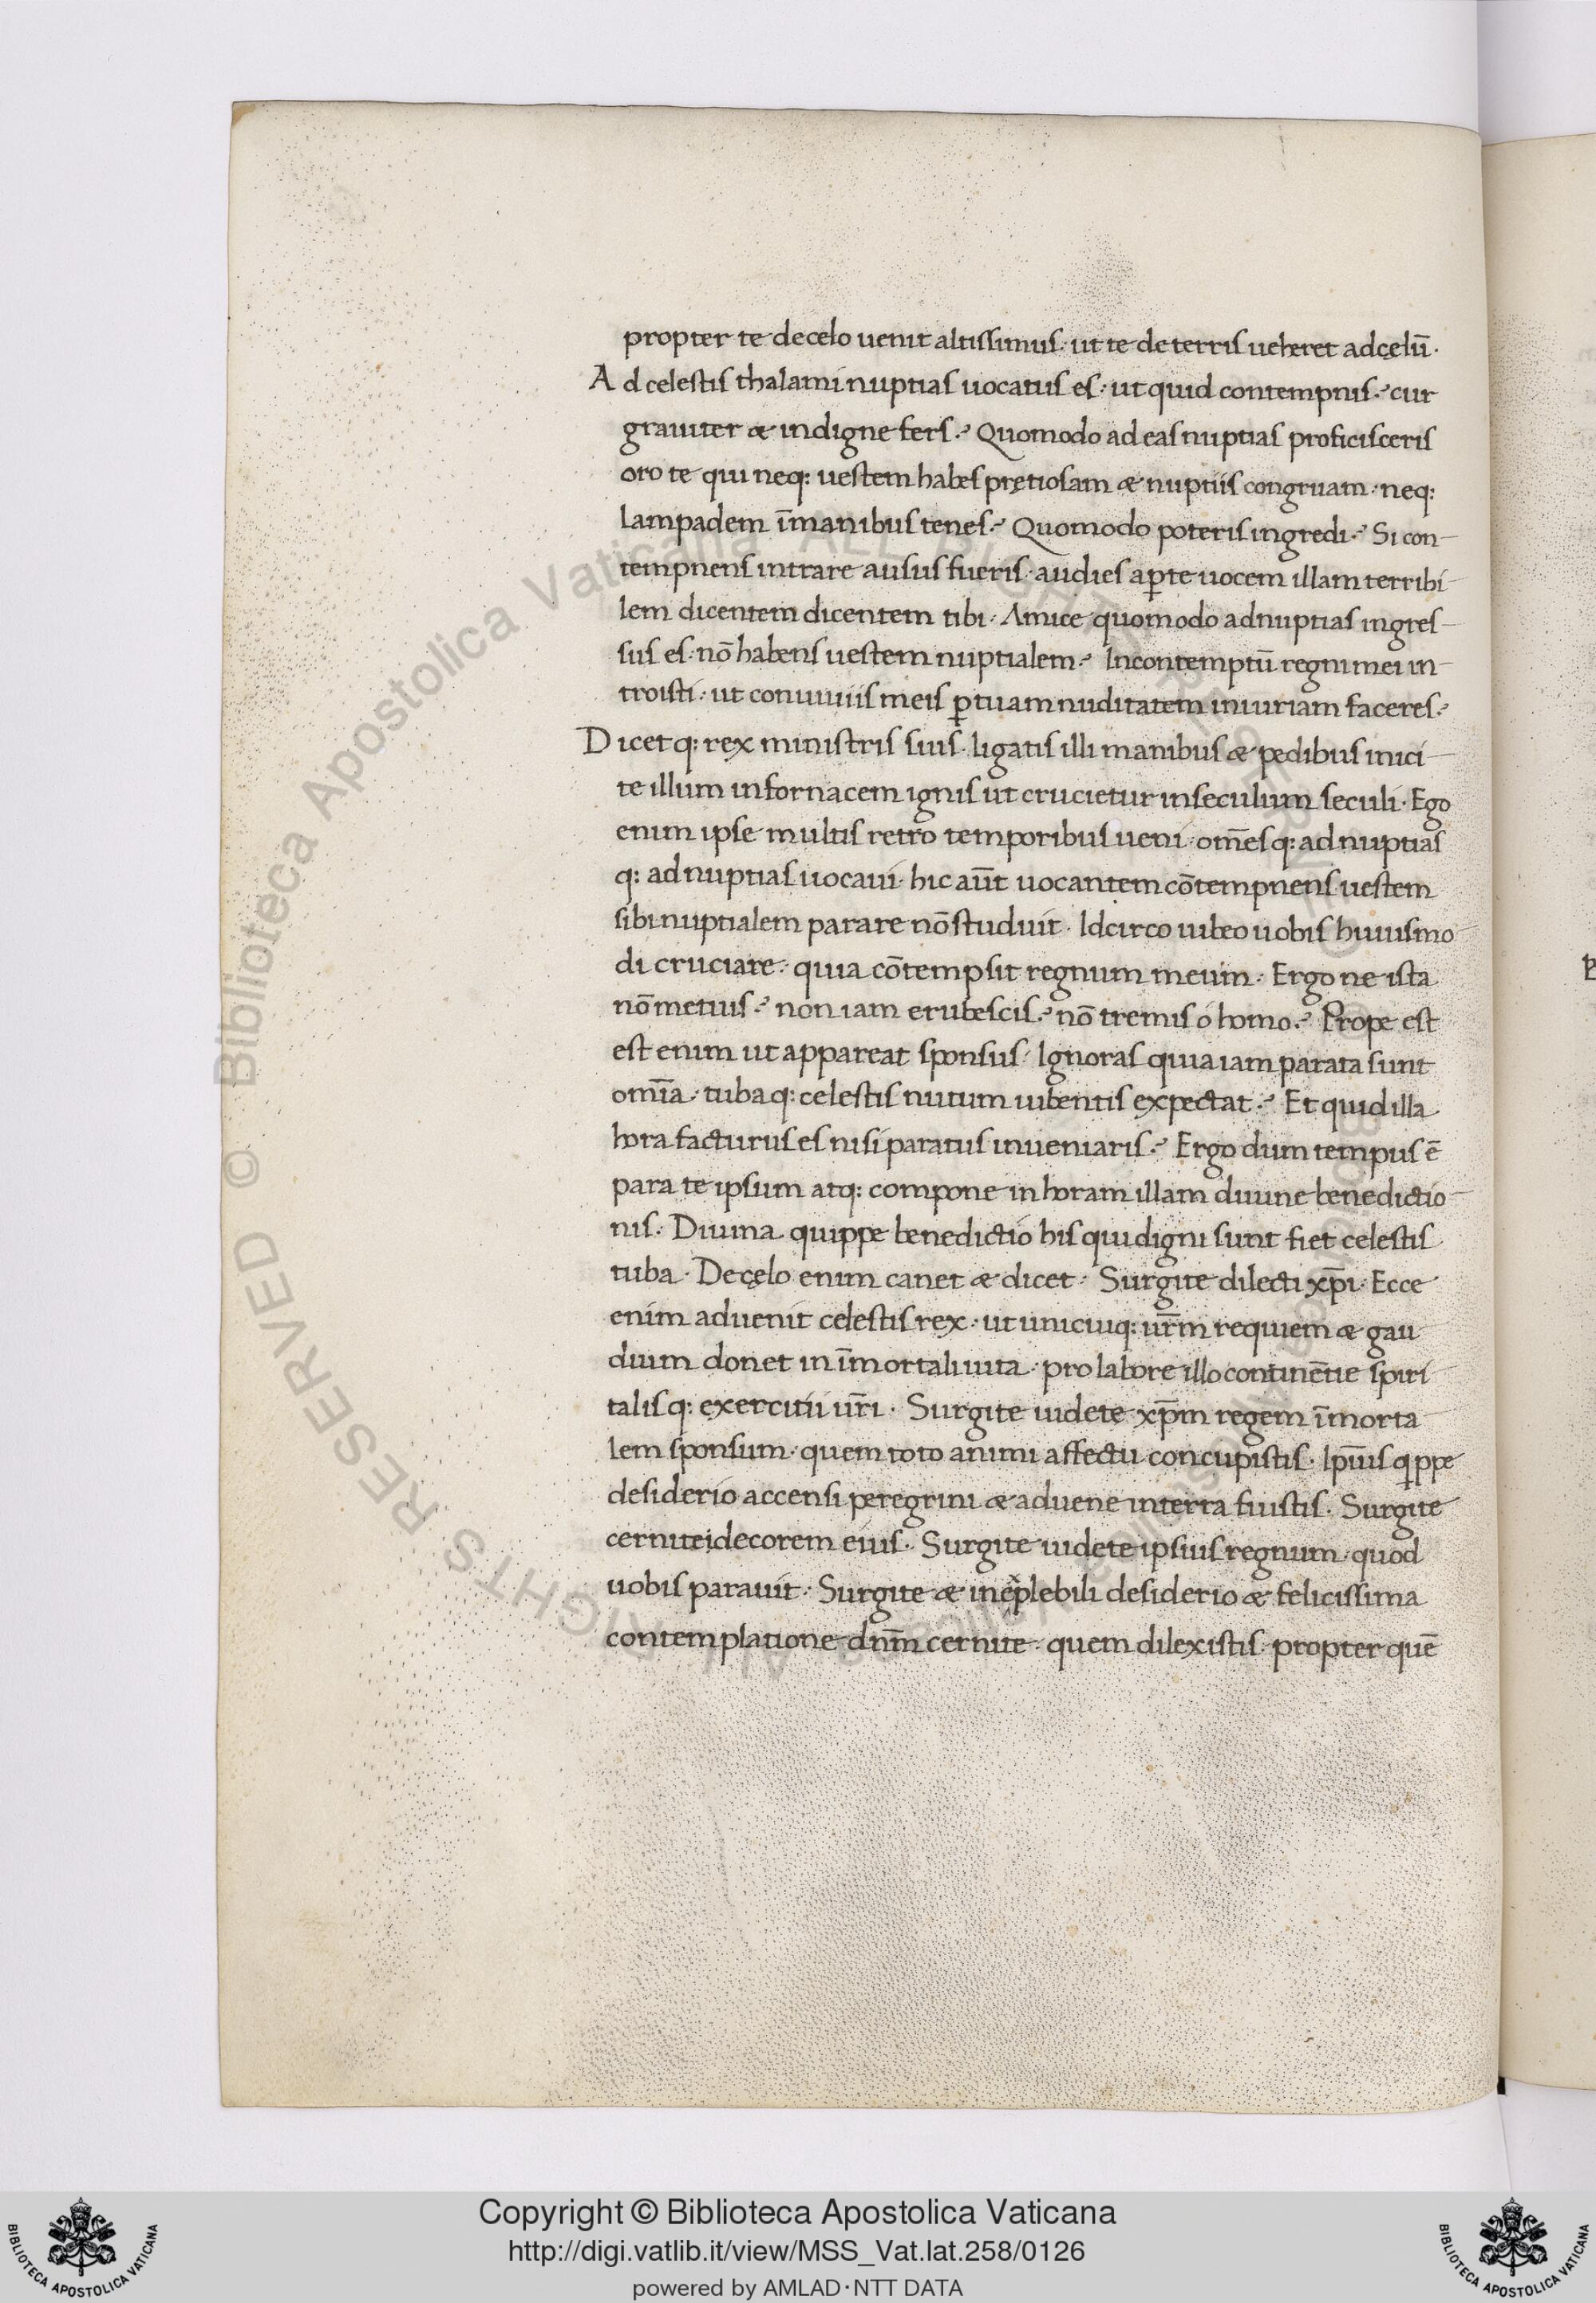 propter te de celo uenit altissimus · ut te de terris ueheret ad cęlū ·
Ad celestis thalami nuptias uocatus es · ut quid contempnis ? cur
grauiter & indigne fers ? Quomodo ad eas nuptias proficisceris
oro te qui neq: uestem habes pretiosam & nuptiis congruam · neq:
lampadem ī manibus tenes ? Quomodo poteris ingredi ? Si con-
tempnens intrare ausus fueris · audies aꝑte uocem illam terribi-
lem dicentem dicentem tibi · Amice quomodo ad nuptias ingres-
sus es · nō habens uestem nuptialem ? In contemptū regni mei in-
troisti · ut conuiuiis meis ꝑ tuam nuditatem iniuriam faceres ?
Dicet q: rex ministris suis · ligatis illi manibus & pedibus inici-
te illum in fornacem ignis ut crucietur in seculum seculi · Ego
enim ipse multis retro temporibus ueni · om̄es q: ad nuptias
q: ad nuptias uocaui · hic aūt uocantem cōtempnens uestem
sibi nuptialem parare nō studuit · Idcirco iubeo uobis huiusmo-
di cruciare · quia cōtempsit regnum meum · Ergo ne ista
nō metuis ? non iam erubescis ? nō tremis o homo ? Prope est
est enim ut appareat sponsus · Ignoras quia iam parata sunt
omīa · tuba q: celestis nutum iubentis expectat ? Et quid illa
hora facturus es nisi paratus inueniaris ? Ergo dum tempus ē
para te ipsum atq: compone in horam illam diuine benedictio-
nis · Diuina quippe benedictio his qui digni sunt fiet celestis
tuba · De cęlo enim canet & dicet · Surgite dilecti xp̄i · Ecce
enim aduenit celestis rex · ut unicuiq: ur̄m requiem & gau-
dium donet in īmortali uita · pro labore illo continētie spiri-
talis q: exercitii ur̄i · Surgite uidete xp̄m regem īmorta-
lem sponsum · quem toto animi affectu concupistis · Ipīus qppe
desiderio accensi peregrini & aduene in terra fuistis · Surgite
cernite decorem eius · Surgite uidete ipsius regnum · quod
uobis parauit · Surgite & inexplebili desiderio & felicissima
contemplatione dn̄m cernite · quem dilexistis · propter quē
Copyright © Biblioteca Apostolica Vaticana
http://digi.vatlib.it/view/MSS_Vat.lat.258/0126
powered by AMLAD·NTT DATA